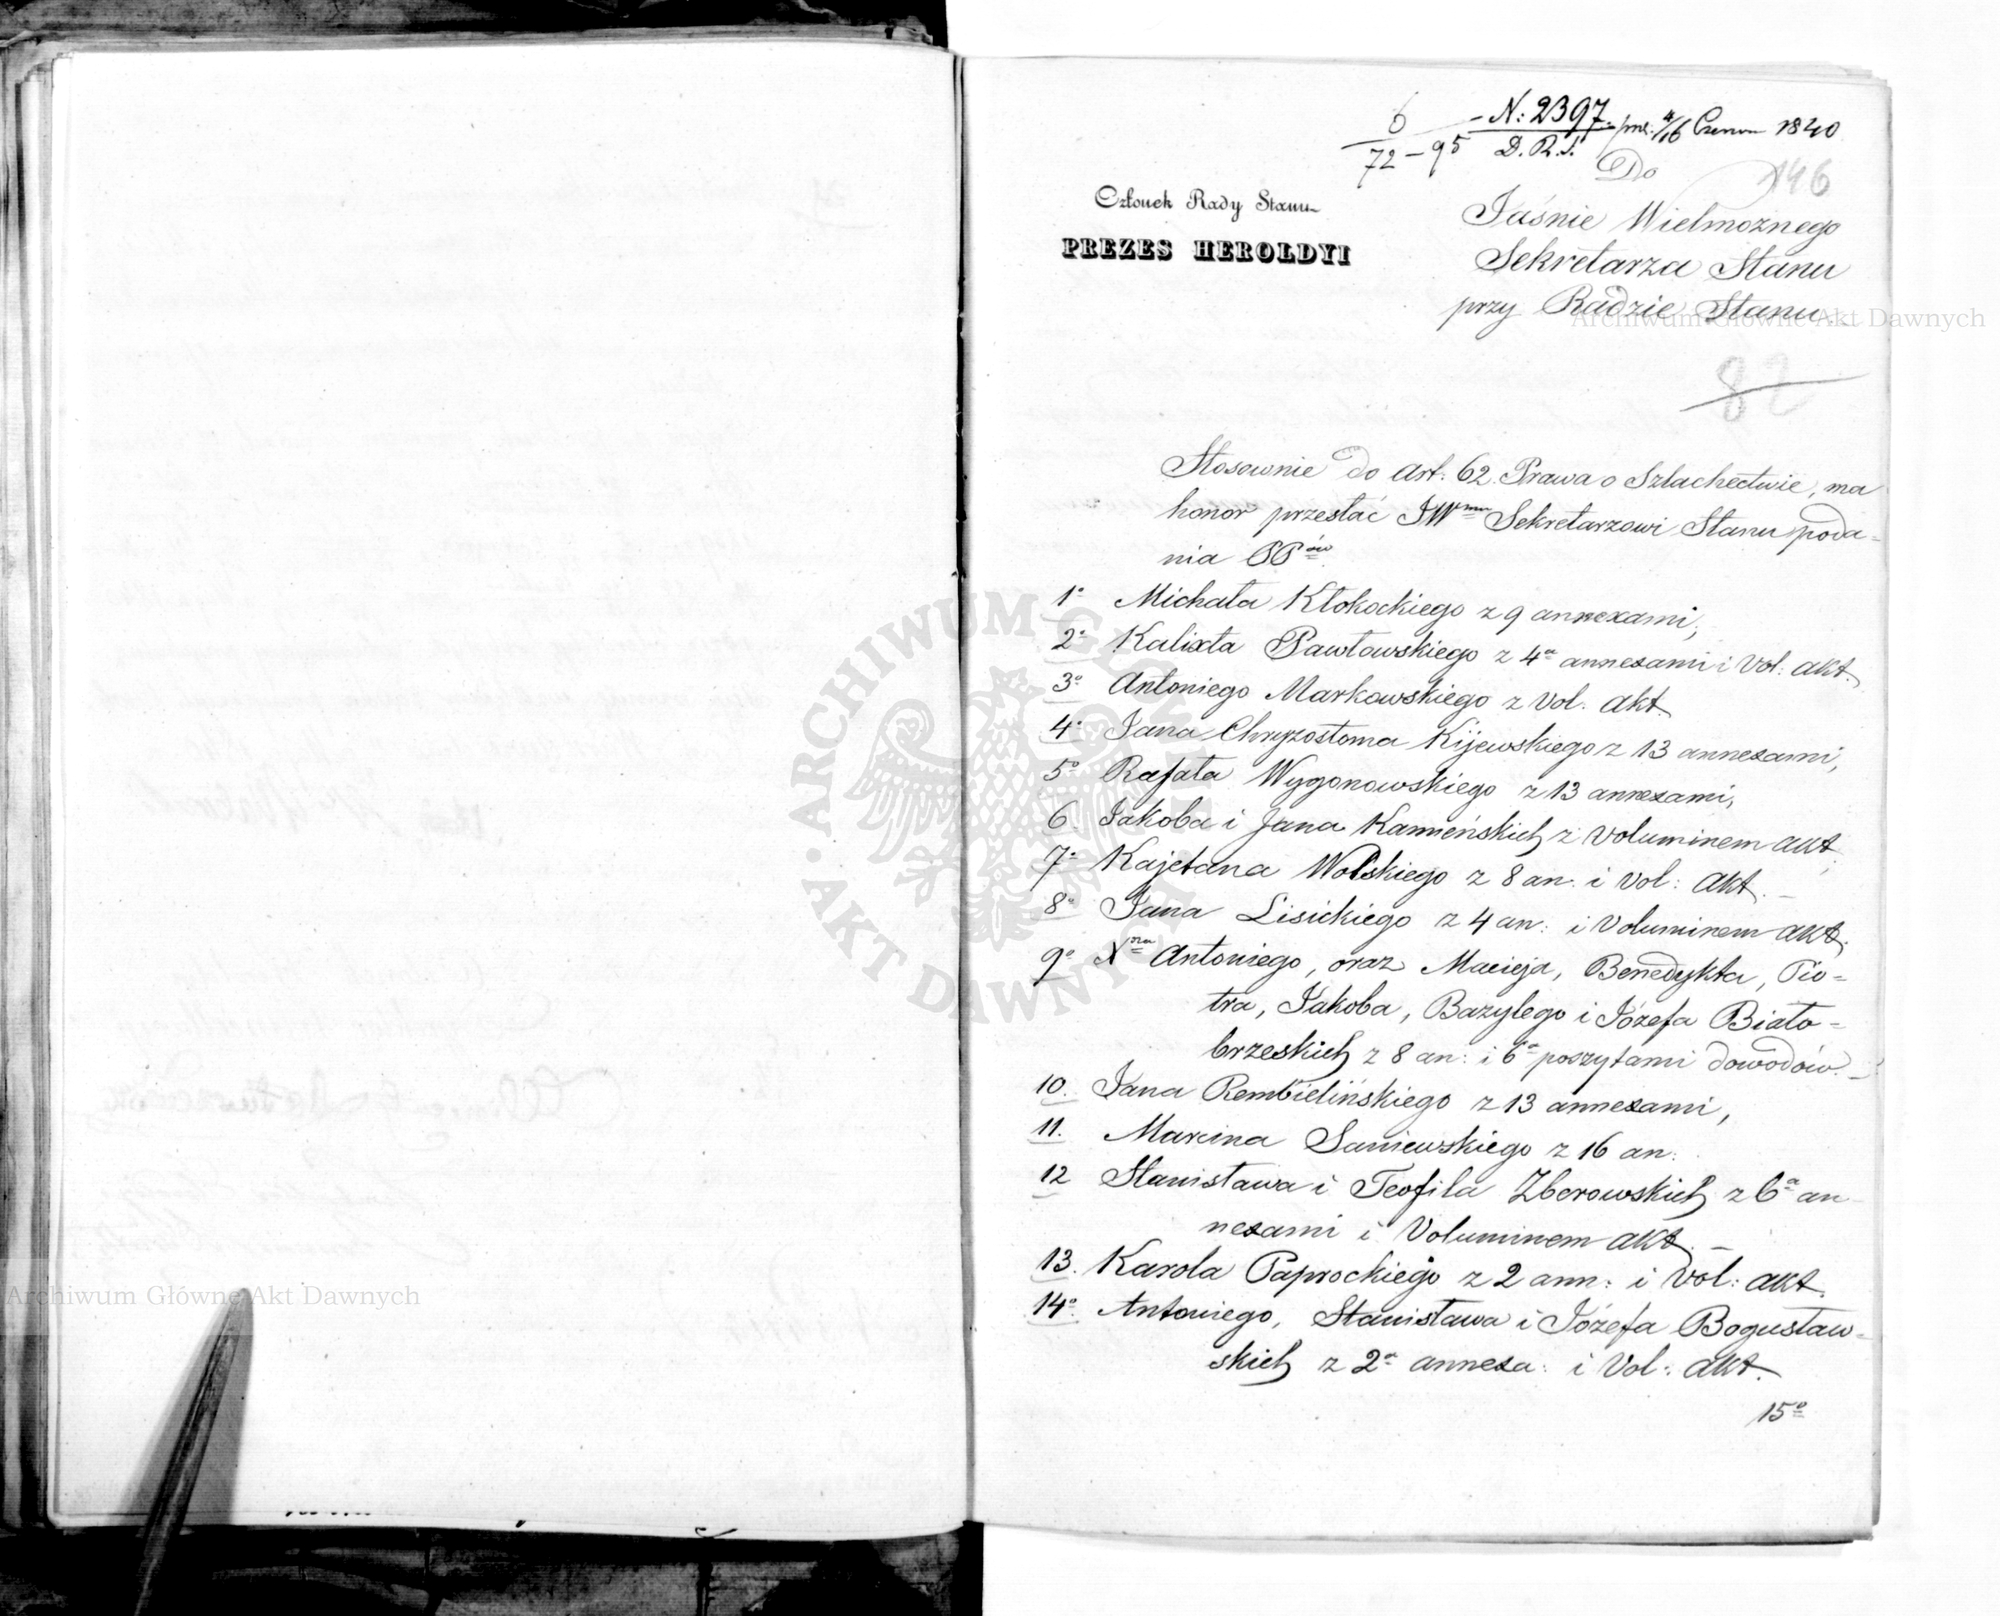 6
72 – 95
N: 2397
D. R. S.
4/16 Czerwca 1840
146
Do
Człouek Rady Stanu
PREZES HEROLDYI
Jaśnie Wielmożnego
Sekretarza Stanu
przy Radzie Stanu
Archiwum Główne Akt Dawnych
82
Stosownie do art: 62 Prawa o Szlachectwie, ma
honor przesłać JWmu Sekretarzowi Stanu poda-
nia PPów
1o Michała Kłokockiego z 9 annexami;
2o Kalixta Pawłowskiego z 4a annexami i Vol: akt.
3o Antoniego Markowskiego z Vol. akt.
4o Jana Chryzostoma Kijewskiego z 13 annexami,
5o Rafała Wygonowskiego z 13 annexami,
6 Jakoba i Jana Kamieńskich z Voluminem akt
7o Kajetana Wolskiego z 8 an. i Vol: akt. –
8o Jana Lisickiego z 4 an: i Voluminem akt,
9o Xdza Antoniego, oraz Macieja, Benedykta, Pio-
tra, Jakoba, Bazylego i Józefa Biało-
brzeskich z 8 an: i 6a poszytami dowodów. –
10. Jana Rembielińskiego z 13 annexami,
11. Marcina Saniewskiego z 16 an:
12 Stanisława i Teofila Zberowskich z 6a an
nexami i Voluminem akt. –
13. Karola Paprockiego z 2 ann: i Vol: akt.
14o Antoniego, Stanisława i Józefa Bogusław-
skich z 2a annexa: i Vol: akt.
15o
ARCHIWUM GŁÓWNE AKT DAWNYCH
Archiwum Główne Akt Dawnych